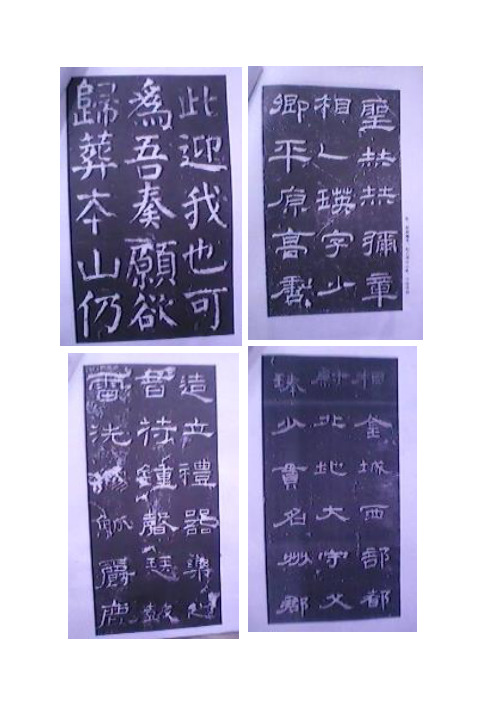 此迎我也可
為吾奏願欲
歸葬本山仍
聖赫赫彌章
相乙瑛字少
卿平原高唐
造立禮器樂之
音苻鍾磬瑟鼓
雷洗觴觚爵鹿
相金城西部都
尉北地大守父
琫少貫名州郡